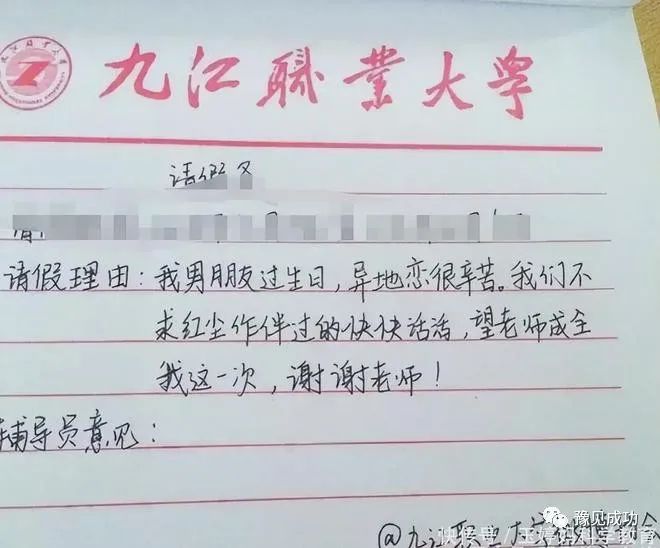 九江職業大学
请假
请假理由：我男朋友过生日，异地恋很辛苦。我们不
求红尘作伴过的快快活活，望老师成全
我这一次，谢谢老师！
辅导员意见：
豫见成功
快传号/王婷妈科学教育
@九江职